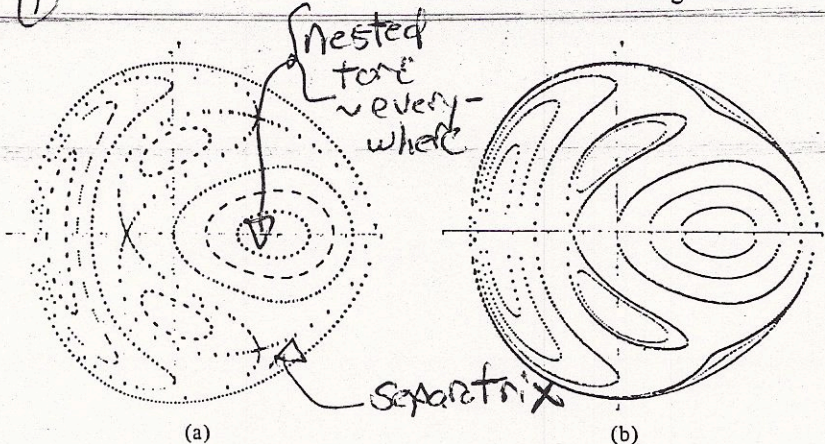 nested
tori
~ every-
where
separtrix
(a)
(b)